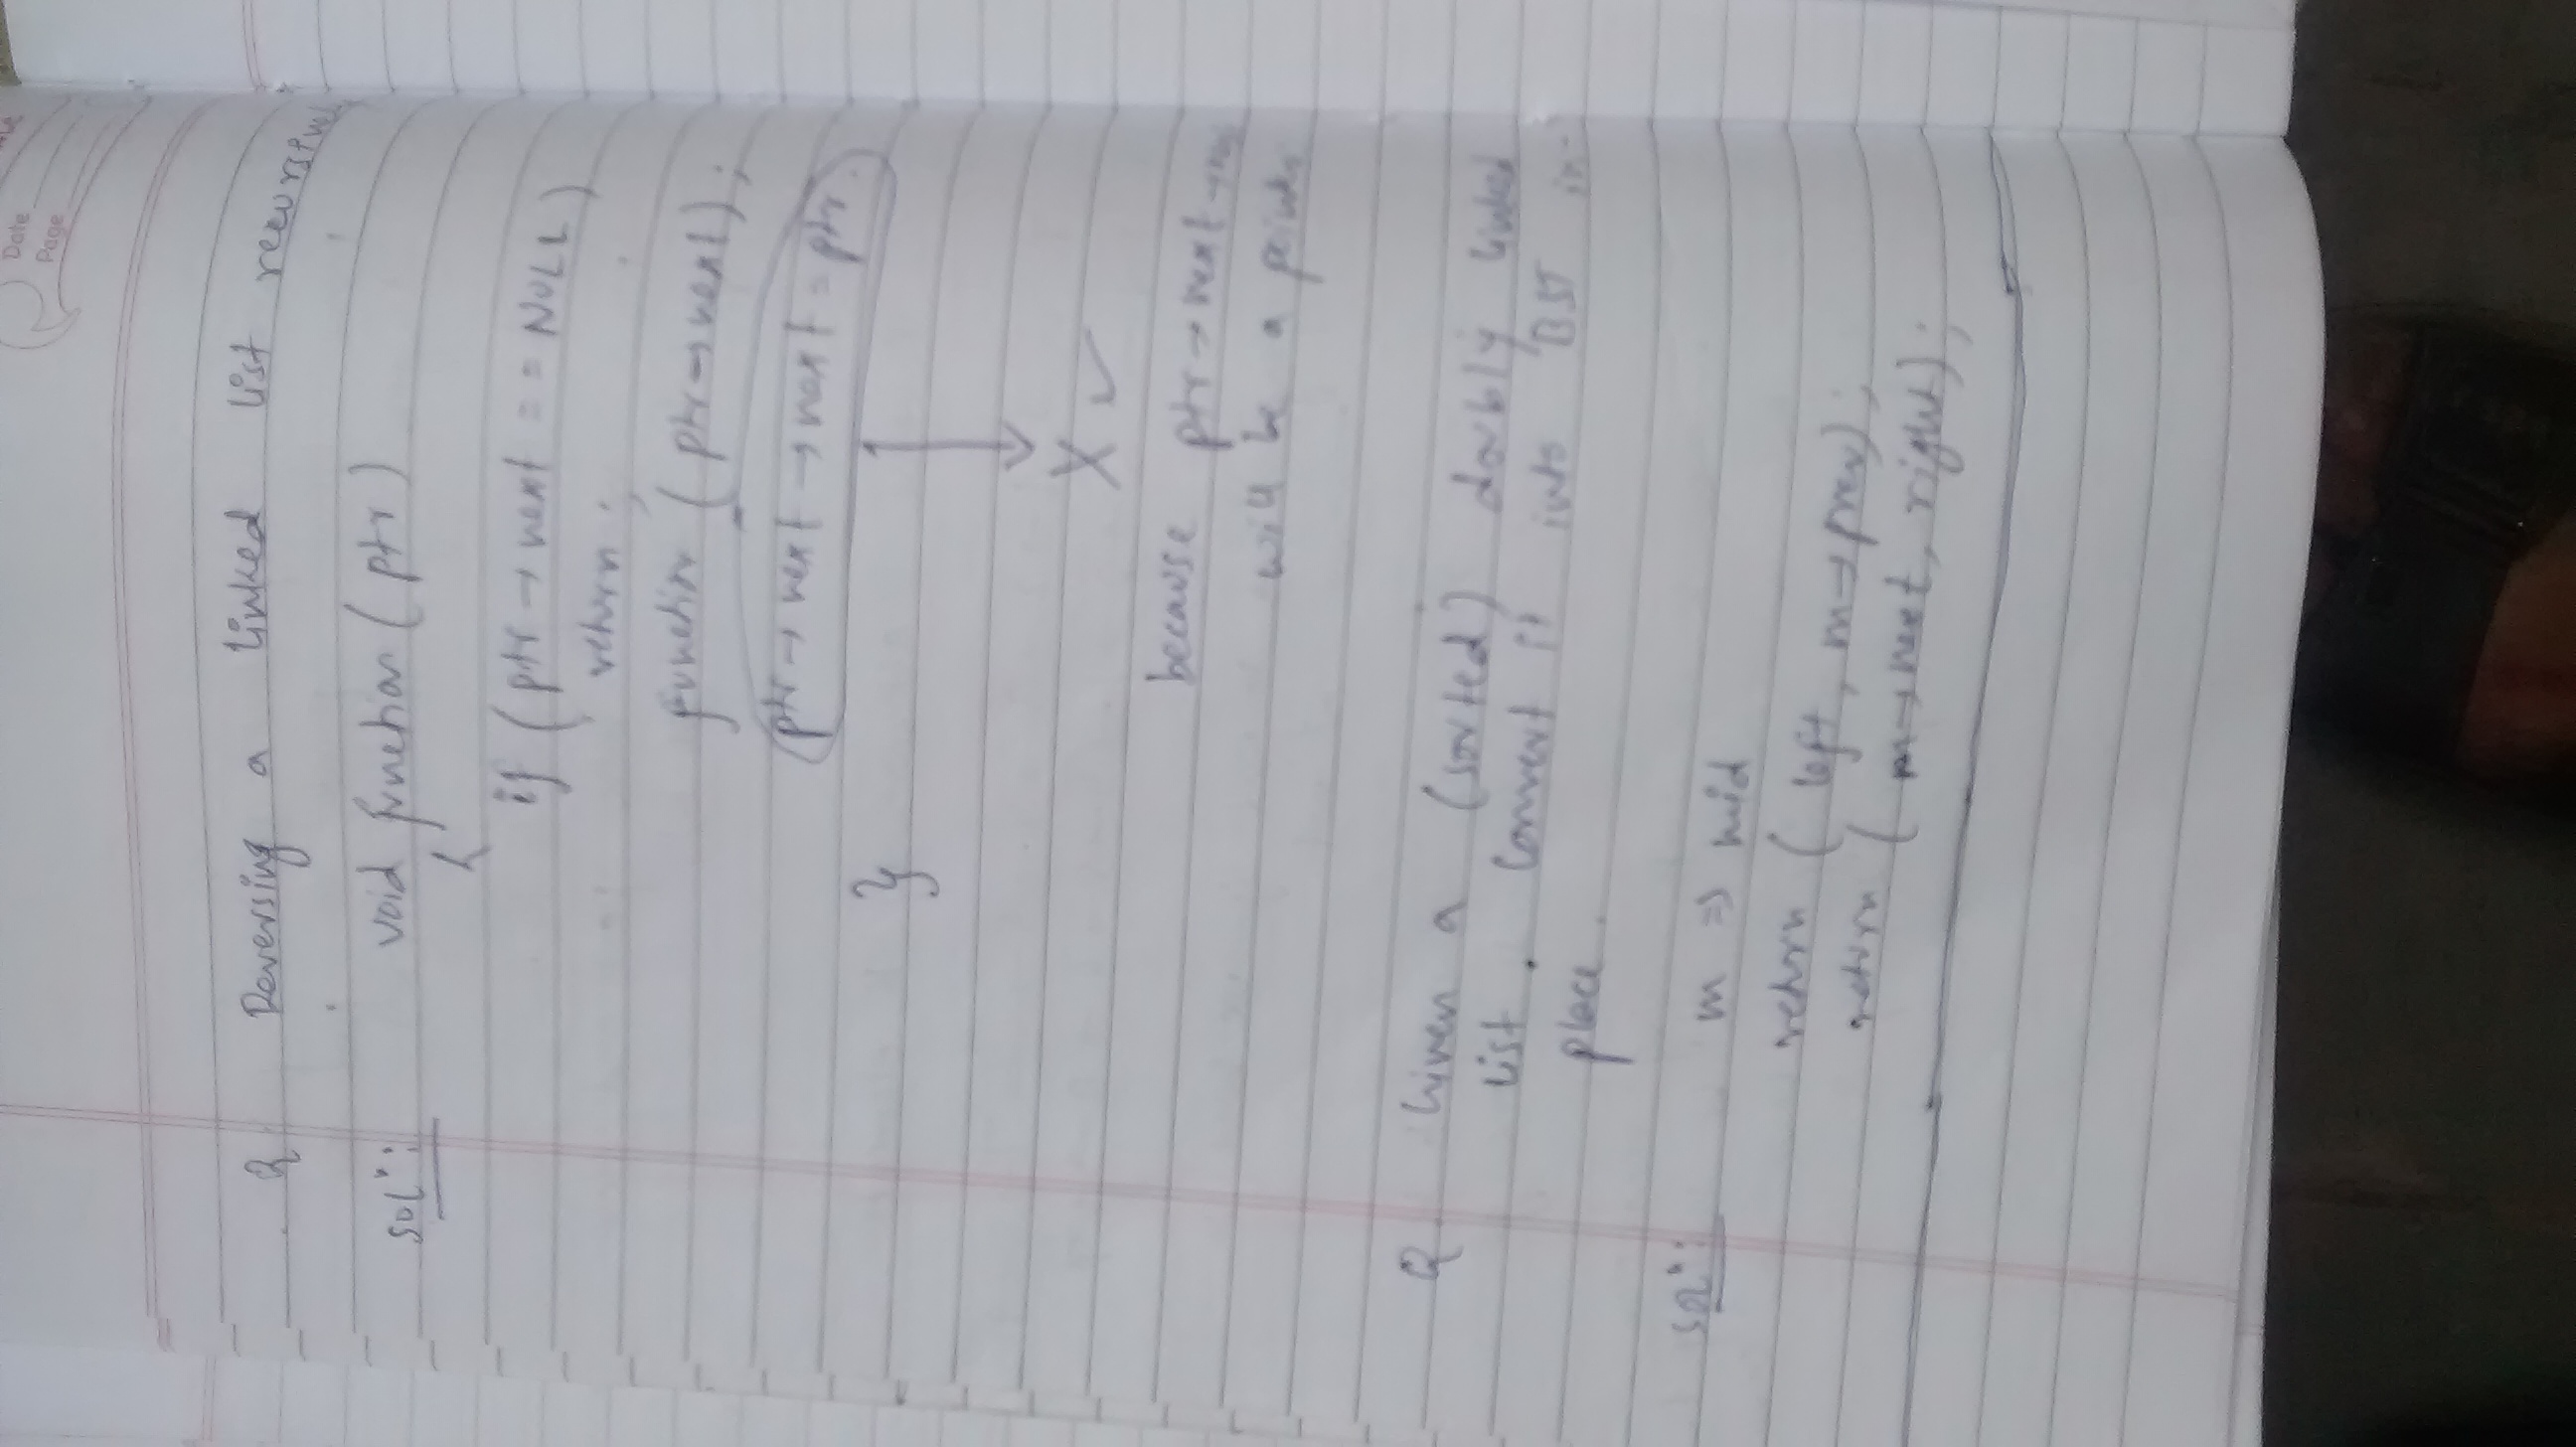 Date
Page
Q Reversing a linked list recursively
solⁿ: void function (ptr)
{
if (ptr → next == NULL)
return;
function (ptr → next);
ptr → next → next = ptr.
}
X ✓
because ptr → next →
will be a pointer
Q Given a (sorted) doubly linked
list. Convert it into BST in-
place.
solⁿ: m ⇒ mid
return ( left, m → prev);
return ( m → next, right);